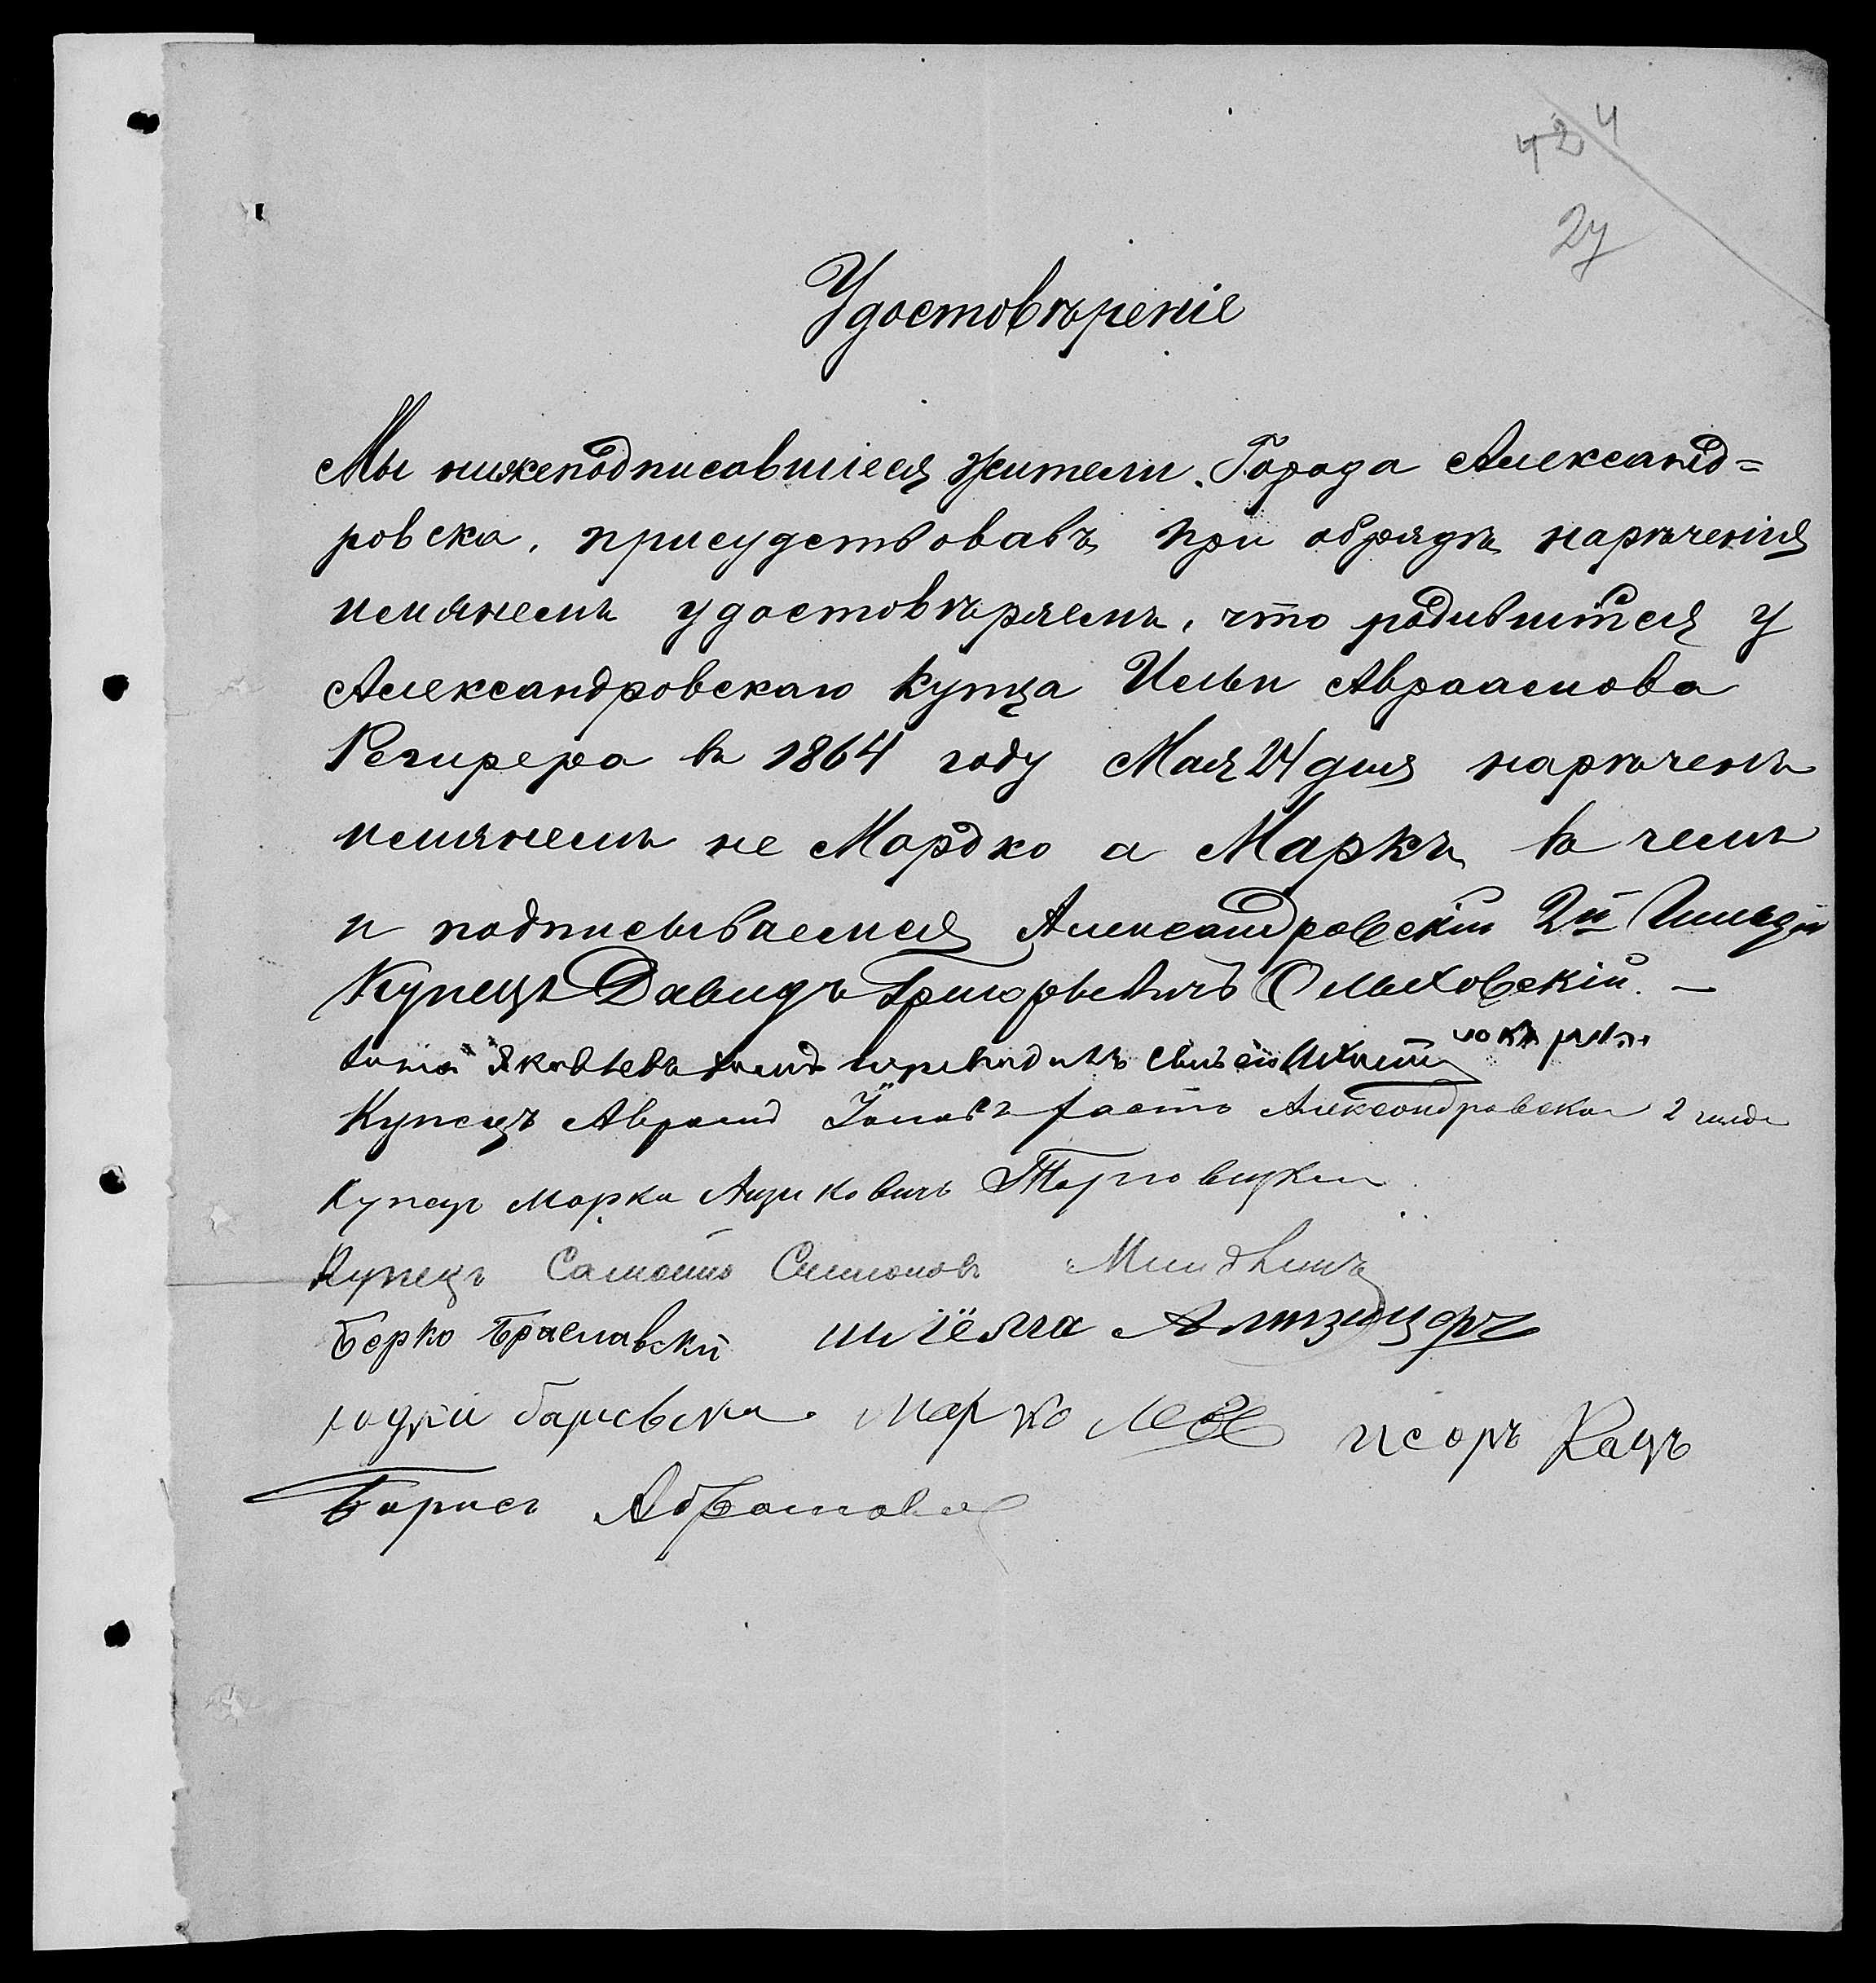 424
27
Удостовѣреніе
Мы нижеподписавшіеся жители Города Александ=
ровска, присудствовавъ при обрядѣ нарѣченія
имянемъ удостовѣряемъ, что родившійся у
Александровскаго Купца Ильи Авраамова
Регирера въ 1864 году Мая 24 дня нарѣченъ
имянемъ не Мордко а Маркъ въ чемъ
и подписываемся Александровскій 2й Гильдіи
Купецъ Давидъ Григорьевичъ Ольховскій. —
Яковлевъ
Купецъ Аврамъ Александровской 2 гилд
Купецъ Марки Ициковичъ Терновицкій
Купецъ Самоило Симоновъ
Берко Браславскій шлёма Алтзицеръ
Марко Исоръ Кацъ
Борисъ Абрамовъ